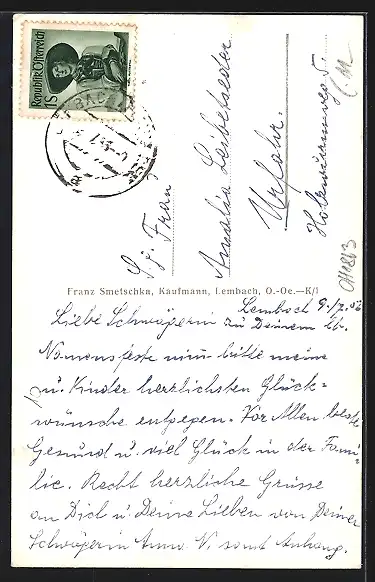 Republik Österreich
1 S
S. g. Frau
Amalia Leibetseder
Urfahr.
Holzwurmweg 5.
Franz Smetschka, Kaufmann, Lembach, O.-Oe.—K/I
Lembach 9./7. 56
Liebe Schwägerin zu Deinem lb.
Namensfeste nimm bitte meine
u. Kinder herzlichsten Glück=
wünsche entgegen. Vor Allen beste
Gesund u. viel Glück in der Fami-
lie. Recht herzliche Grüsse
an Dich u. Deine Lieben von Deiner
Schwägerin Anna N. samt Anhang.